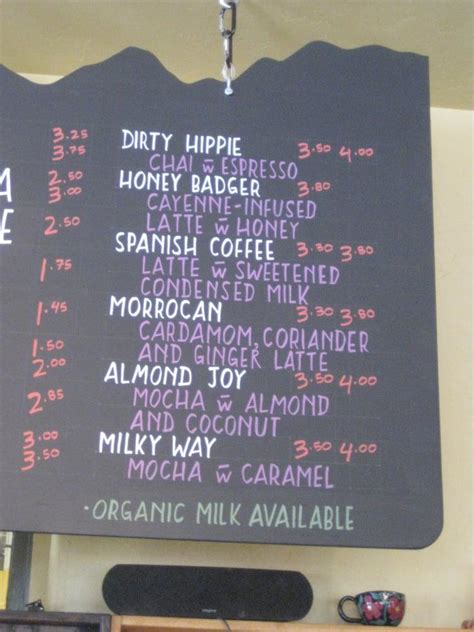 3.25
3.75
2.50
3.00
2.50
1.75
1.45
1.50
2.00
2.85
3.00
3.50
DIRTY HIPPIE 3.50 4.00
CHAI w̄ ESPRESSO
HONEY BADGER 3.80
CAYENNE-INFUSED
LATTE w̄ HONEY
SPANISH COFFEE 3.30 3.80
LATTE w̄ SWEETENED
CONDENSED MILK
MORROCAN 3.30 3.80
CARDAMOM, CORIANDER
AND GINGER LATTE
ALMOND JOY 3.50 4.00
MOCHA w̄ ALMOND
AND COCONUT
MILKY WAY 3.50 4.00
MOCHA w̄ CARAMEL
·ORGANIC MILK AVAILABLE